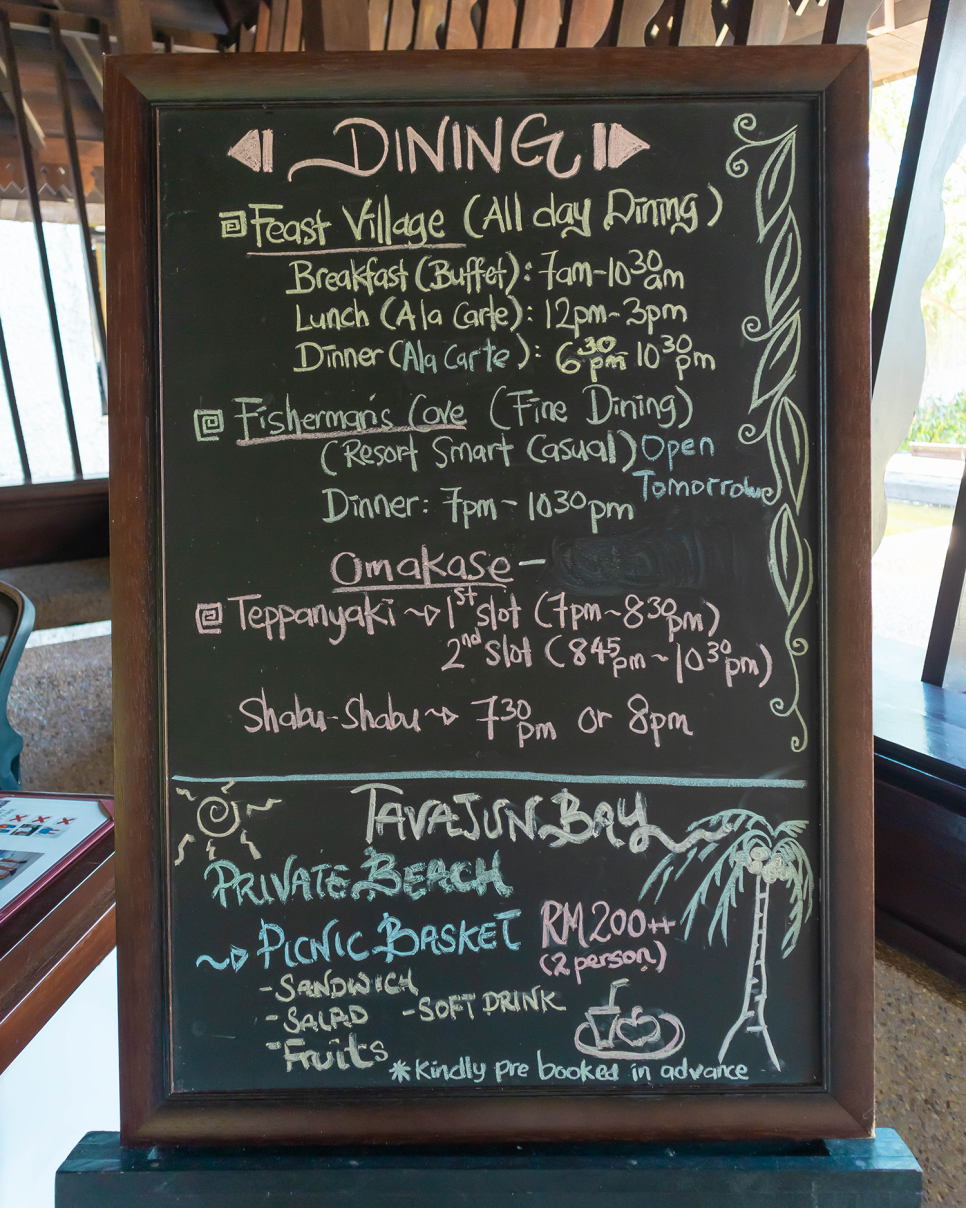 DINING
Feast Village (All day Dining)
Breakfast (Buffet): 7am-10³⁰am
Lunch (Ala Carte): 12pm-3pm
Dinner (Ala Carte): 6³⁰pm 10³⁰pm
Fisherman's Cove (Fine Dining)
(Resort Smart Casual) Open
Tomorrow
Dinner: 7pm - 10³⁰pm
Omakase -
Teppanyaki ~> 1st slot (7pm~8³⁰pm)
2nd slot (8⁴⁵pm~10³⁰pm)
Shabu-Shabu ~> 7³⁰pm or 8pm
TAVAJUN BAY
PRIVATE BEACH
~> PICNIC BASKET RM200++
(2 person)
- SANDWICH
- SALAD - SOFT DRINK
- Fruits
*Kindly pre booked in advance